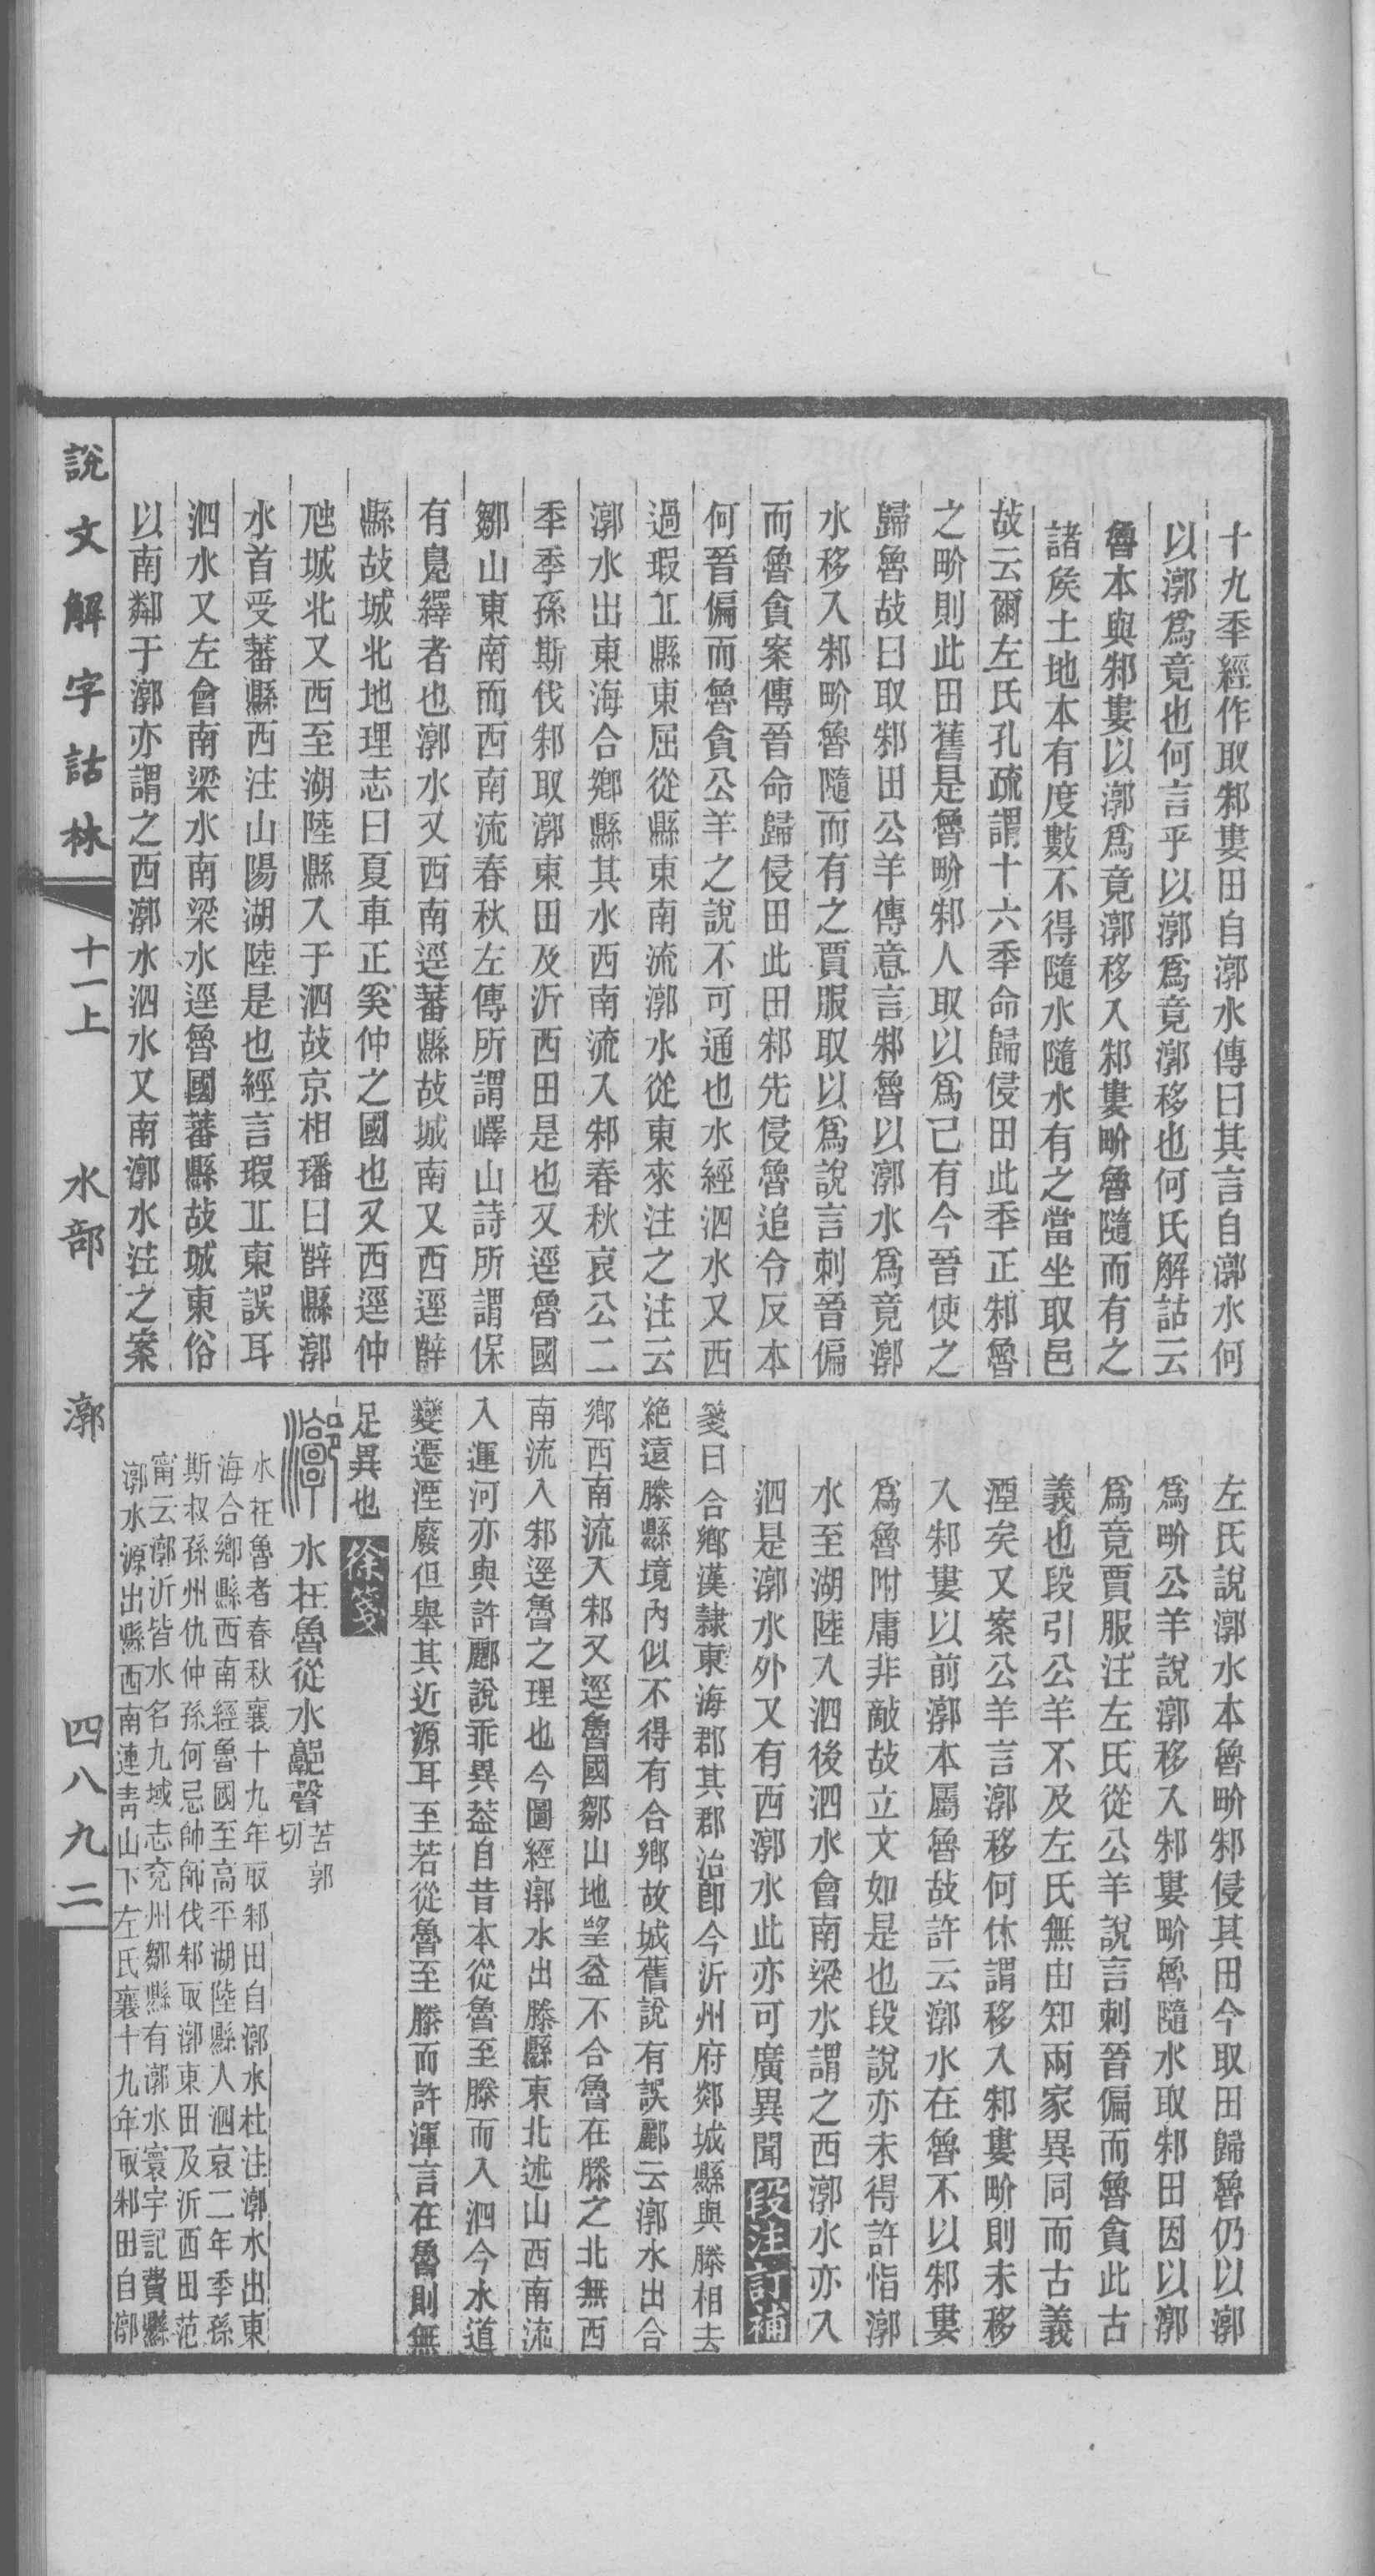 十九秊經作取邾婁田自漷水傳曰其言自漷水何
以漷爲竟也何言乎以漷爲竟漷移也何氏解詁云
魯本與邾婁以漷爲竟漷移入邾婁畍魯隨而有之
諸矦土地本有度數不得隨水隨水有之當坐取邑
故云爾左氏孔疏謂十六秊命歸侵田此秊正邾魯
之畍則此田舊是魯畍邾人取以爲己有今晉使之
歸魯故曰取邾田公羊傳意言邾魯以漷水爲竟漷
水移入邾畍魯隨而有之賈服取以爲說言刺晉偏
而魯貪案傳晉命歸侵田此田邾先侵魯追令反本
何晉偏而魯貪公羊之說不可通也水經泗水又西
過瑕丠縣東屈從縣東南流漷水從東來注之注云
漷水出東海合鄉縣其水西南流入邾春秋哀公二
秊季孫斯伐邾取漷東田及沂西田是也又逕魯國
鄒山東南而西南流春秋左傳所謂嶧山詩所謂保
有鳧繹者也漷水又西南逕蕃縣故城南又西逕辥
縣故城北地理志曰夏車正奚仲之國也又西逕仲
虺城北又西至湖陸縣入于泗故京相璠曰辥縣漷
水首受蕃縣西注山陽湖陸是也經言瑕丠東誤耳
泗水又左會南梁水南梁水逕魯國蕃縣故城東俗
以南鄰于漷亦謂之西漷水泗水又南漷水注之案
左氏說漷水本魯畍邾侵其田今取田歸魯仍以漷
爲畍公羊說漷移入邾婁畍魯隨水取邾田因以漷
爲竟賈服注左氏從公羊說言刺晉偏而魯貪此古
義也段引公羊不及左氏無由知兩家異同而古義
湮矣又案公羊言漷移何休謂移入邾婁畍則未移
入邾婁以前漷本屬魯故許云漷水在魯不以邾婁
爲魯附庸非敵故立文如是也段說亦未得許恉漷
水至湖陸入泗後泗水會南梁水謂之西漷水亦入
泗是漷水外又有西漷水此亦可廣異聞 段注訂補
箋曰合鄉漢隸東海郡其郡治卽今沂州府郯城縣與滕相去
絶遠滕縣境內似不得有合鄉故城舊說有誤酈云漷水出合
鄉西南流入邾又逕魯國鄒山地望益不合魯在滕之北無西
南流入邾逕魯之理也今圖經漷水出滕縣東北述山西南流
入運河亦與許酈說乖異葢自昔本從魯至滕而入泗今水道
變遷湮廢但舉其近源耳至若從魯至滕而許渾言在魯則無
足異也 徐箋
漷 水在魯從水𨞰聲苦郭切
水在魯者春秋襄十九年取邾田自漷水杜注漷水出東
海合鄉縣西南經魯國至高平湖陸縣入泗哀二年季孫
斯叔孫州仇仲孫何忌帥師伐邾取漷東田及沂西田范
甯云漷沂皆水名九域志兗州鄒縣有漷水寰宇記費縣
漷水源出縣西南連靑山下左氏襄十九年取邾田自漷
說文解字詁林 十一上 水部 漷 四八九二